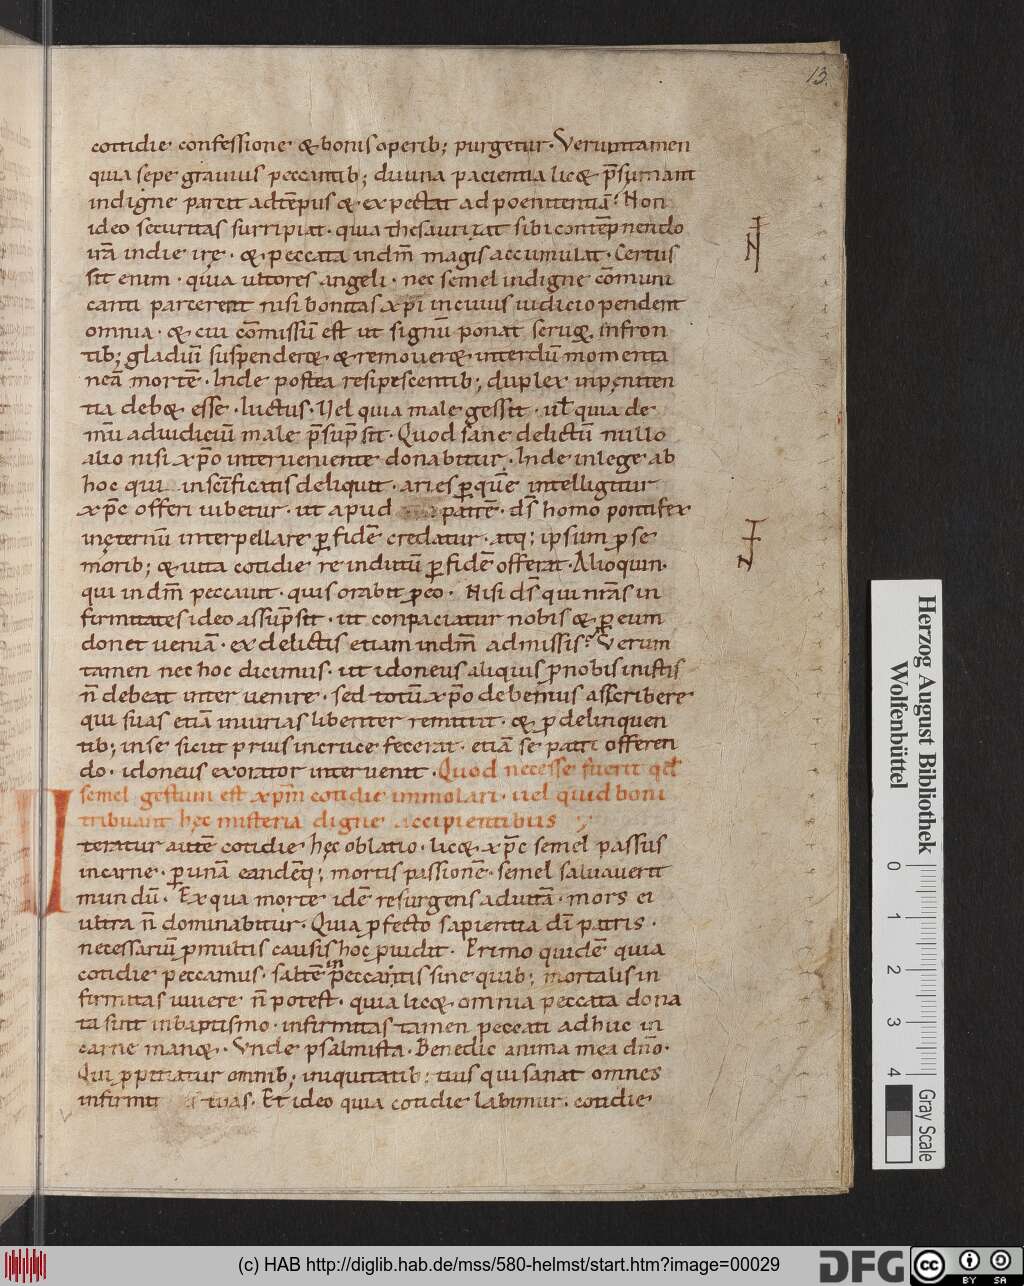 13.
cottidie confessione & bonis operib; purgetur. Verumtamen
quia sepe grauius peccantib; diuina pacientia lic& p̄sumant
indigne parcit adtēpus & expectat ad poenitentiā. Non
ideo securitas surripiat. quia thesaurizat sibi contēpnendo
irā in die irę. & peccata indn̄m magis accumulat. Certus
sit enim. quia ultores angeli. nec semel indigne cōmuni
canti parcerent nisi bonitas xp̄i incuius iudicio pendent
omnia. & cui cōmissū est ut signū ponat seru& infron
tib; gladiū suspender& & remouer& interdū momenta
neā mortē. Inde postea resipescentib; duplex inpęniten
tia deb& esse. luctus. Vel quia male gessit. ul̄ quia de
mū adiudiciū male p̄sūpsit. Quod sane delictū nullo
alio nisi xp̄o interueniente donabitur. Inde inlege ab
hoc qui insc̄ificatis deliquit. aries ꝑ quē intelligitur
xp̄c offeri iubetur. ut apud patrē. ds̄ homo pontifex
inęternū interpellare ꝑ fidē credatur. atq; ipsum ꝓ se
morib; & uita cotidie reinditū ꝑ fidē offerat. Alioquin.
qui in dn̄m peccauit. quis orabit ꝓ eo. Nisi ds̄ qui nr̄as in
firmitates ideo assūpsit. ut conpaciatur nobis & ꝑ eum
donet ueniā. ex delictis etiam indn̄m admissis. Verum
tamen nec hoc dicimus. ut idoneus aliquis ꝓ nobis iniustis
n̄ debeat inter uenire. sed totū xp̄o debemus asscribere
qui suas etiā iniurias libenter remittit. & ꝓ delinquen
tib; in se sicut prius incruce fecerat. etiā se patri offeren
do. idoneus exorator interuenit. Quod necesse fuerit qd̄
semel gestum est xp̄m cotidie immolari. uel quid boni
tribuant hęc misteria digne accipientibus
Iteratur autē cotidie hęc oblatio. lic& xp̄c semel passus
incarne. ꝑ unā eandēq; mortis passionē. semel saluauerit
mundū. Ex qua morte idē resurgens aduitā. mors ei
ultra n̄ dominabitur. Quia ꝓfecto sapientia dī patris.
necessariū ꝓ multis causis hoc ꝓuidit. Primo quidē quia
cotidie peccamus. saltē in peccantis sine quib; mortalis in
firmitas uiuere n̄ potest. quia lic& omnia peccata dona
ta sint inbaptismo. infirmitas tamen peccati adhuc in
carne man&. Vnde psalmista. Benedic anima mea dn̄o.
Qui ꝓpitiatur omnib; iniquitatib; tuis qui sanat omnes
infirmit s tuas. Et ideo quia cotidie labimur. cotidie
Herzog August Bibliothek
Wolfenbüttel
0 1 2 3 4
Gray Scale
(c) HAB http://diglib.hab.de/mss/580-helmst/start.htm?image=00029
DFG
cc BY SA